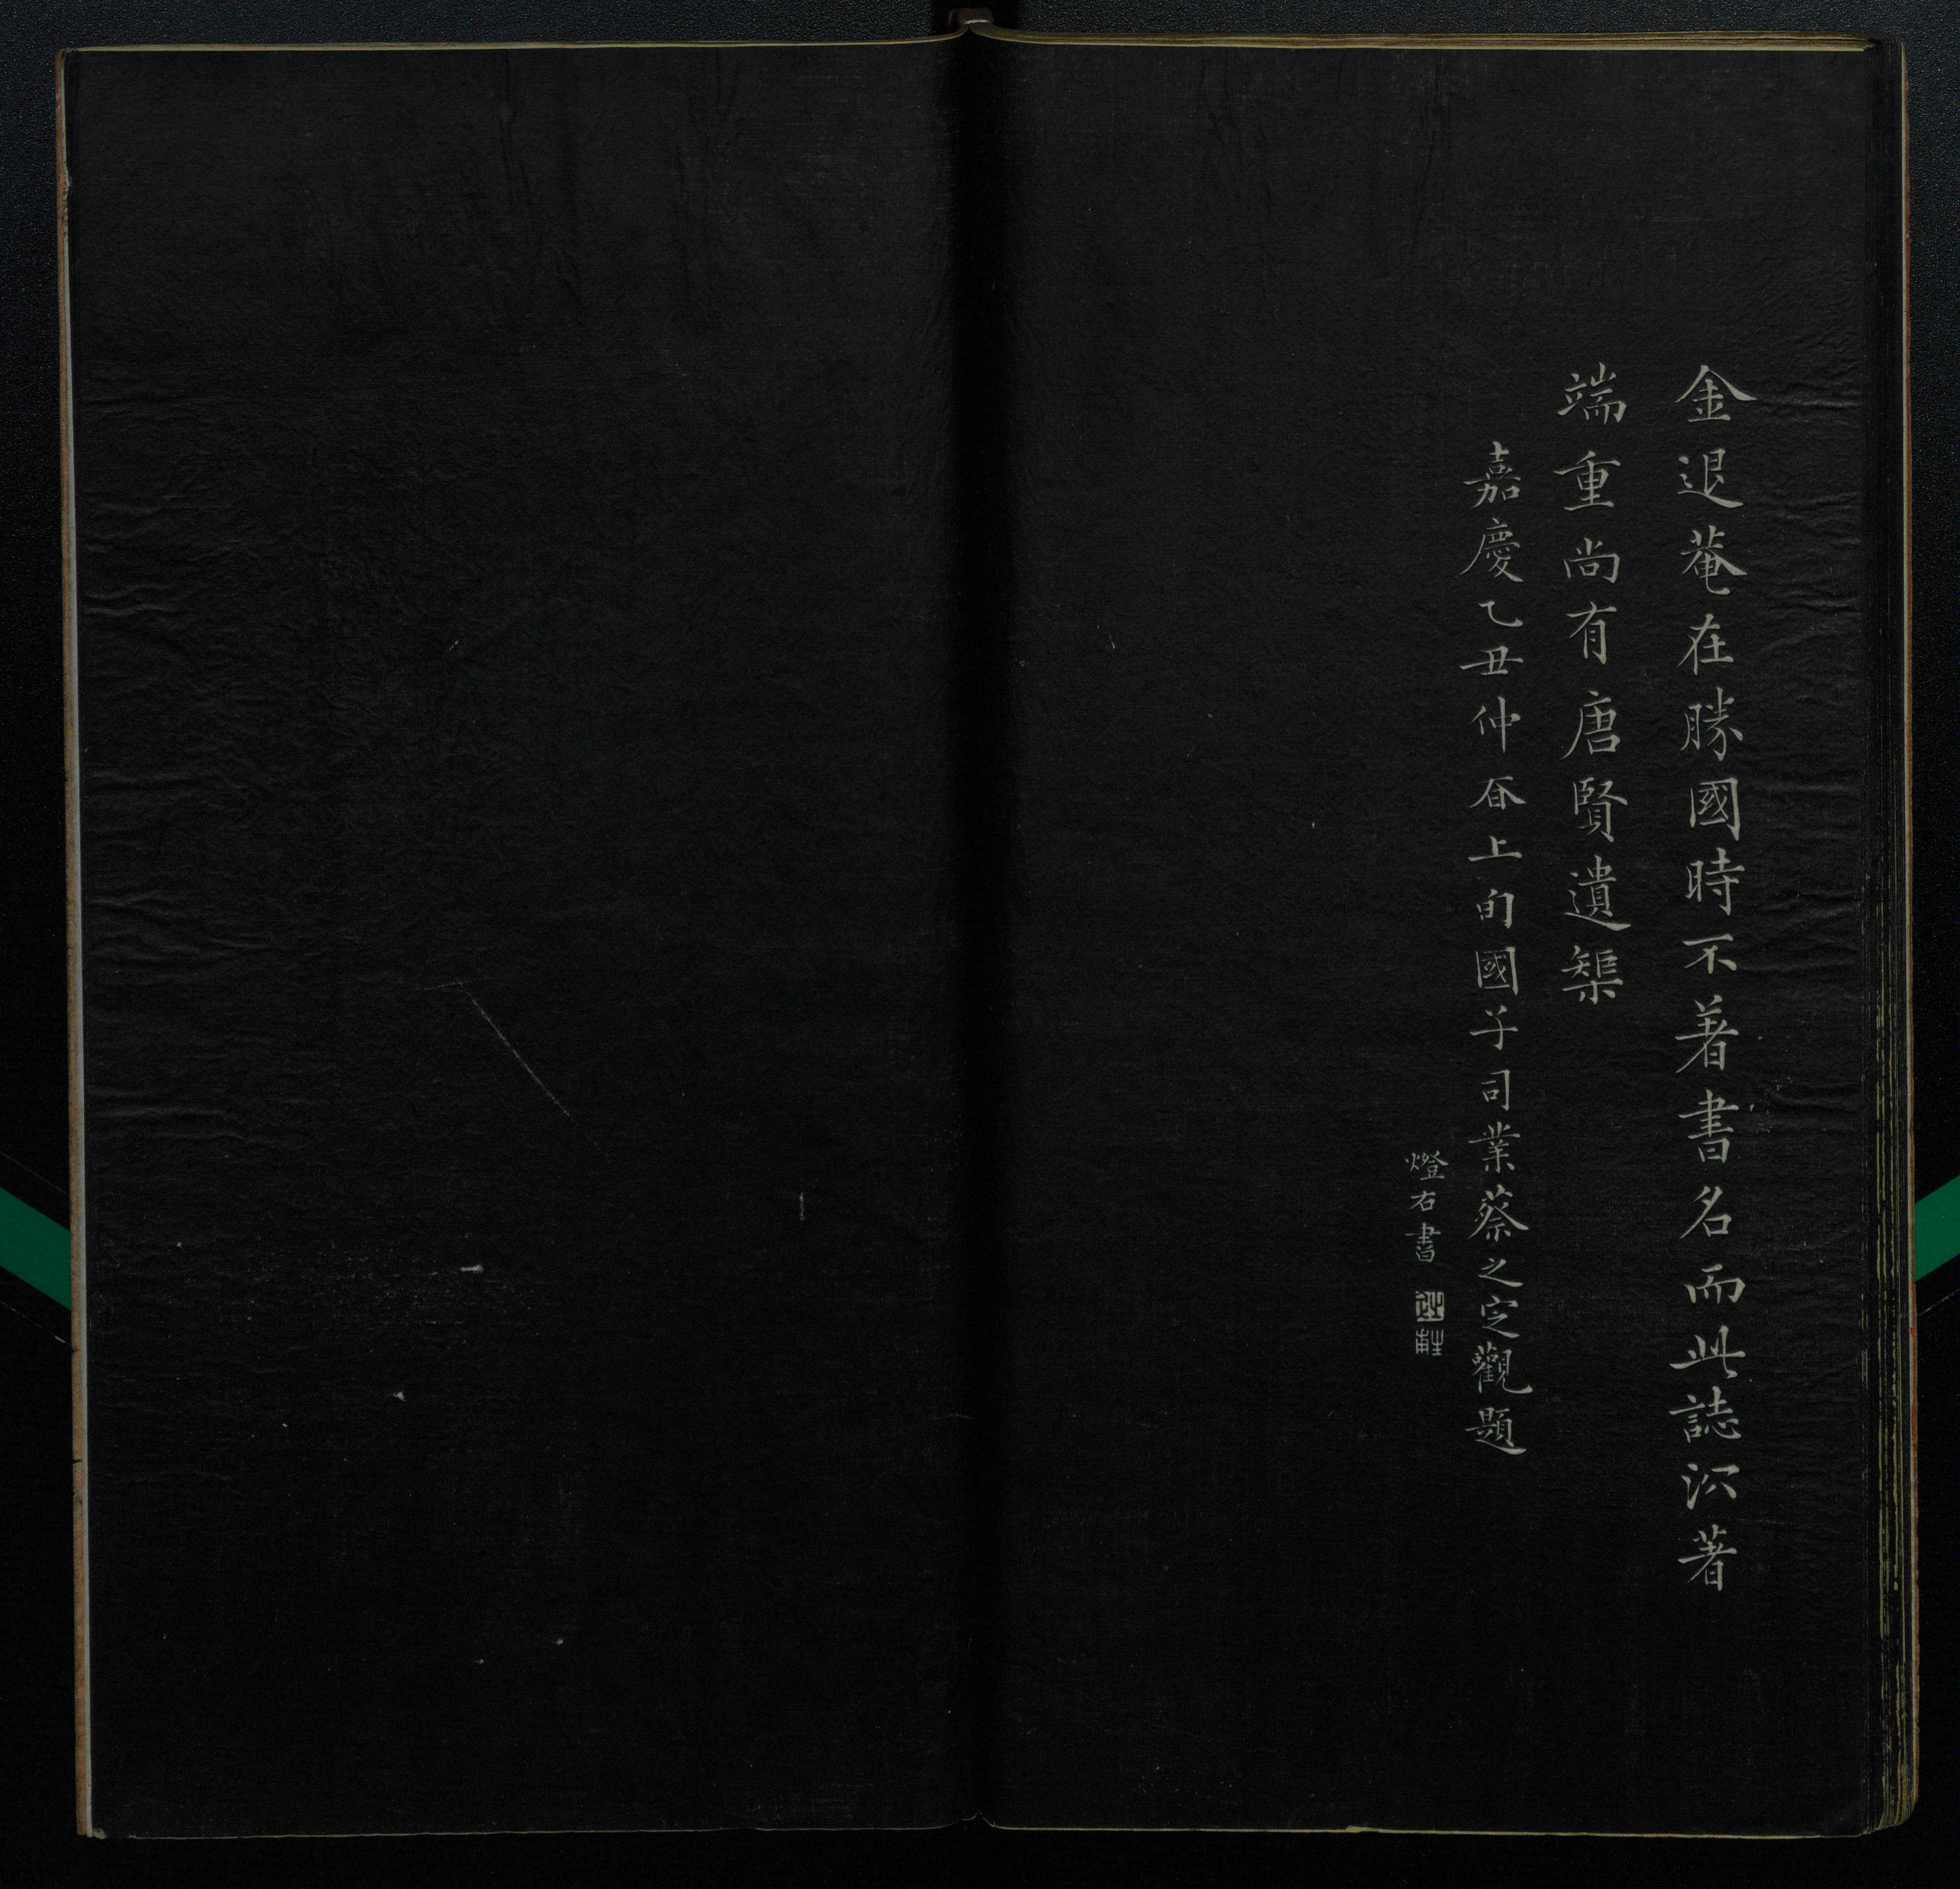 金退菴在勝國時不著書名而此誌沉著
端重尚有唐賢遺榘
嘉慶乙丑仲春上旬國子司業蔡之定觀題
燈右書